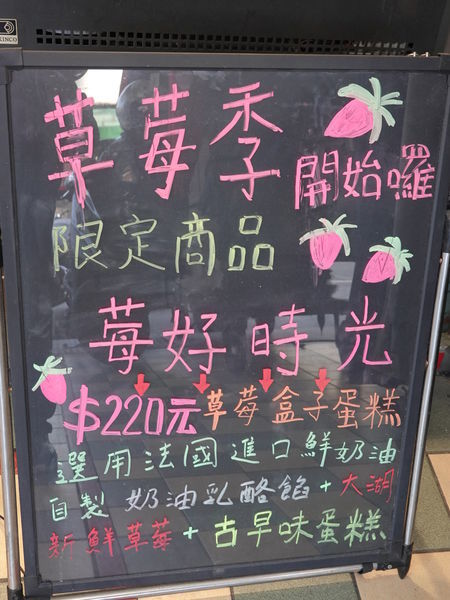 草莓季 開始囉
限定商品
莓好時光
$220元草莓盒子蛋糕
選用法國進口鮮奶油
自製 奶油乳酪餡+大湖
新鮮草莓+古早味蛋糕